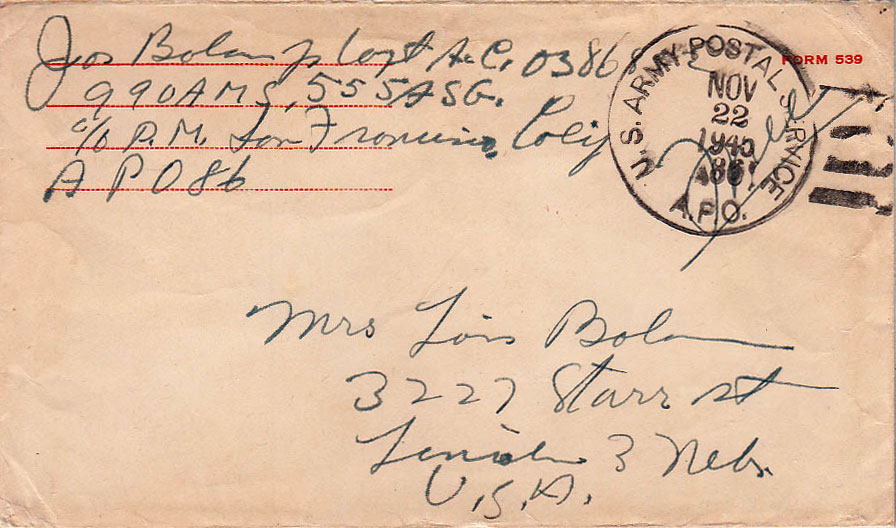 Jos Bolan Jr Capt A.C. 03868
990 AMS, 555 ASG.
c/o P.M. San Francisco, Calif
A P O 86
FORM 539
U.S. ARMY POSTAL SERVICE
NOV
22
1945
86
A.P.O.
Free
Mrs Lois Bolan
3227 Starr st
Lincoln 3 Nebr.
U.S.A.